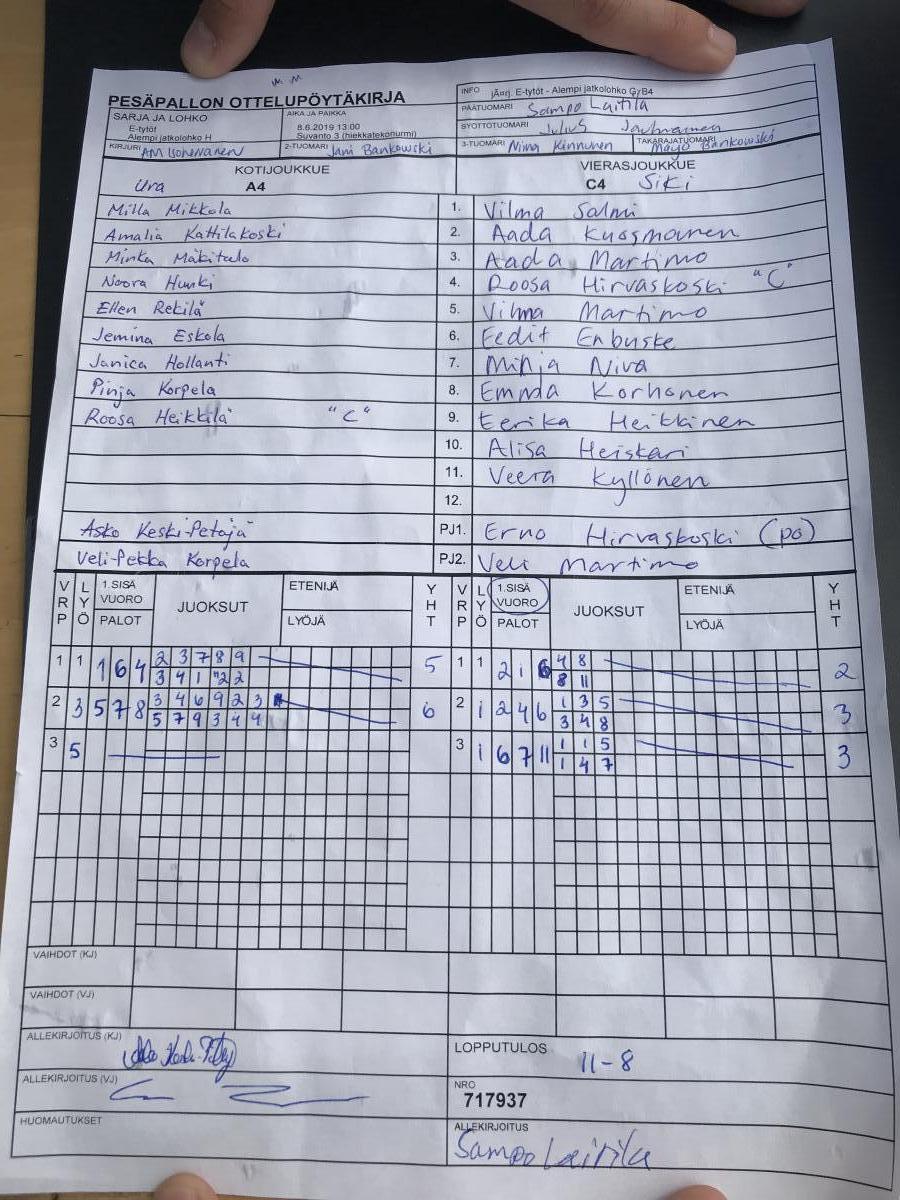 PESÄPALLON OTTELUPÖYTÄKIRJA
INFO E-tytöt - Alempi jatkolohko G7B4
PÄÄTUOMARI Sampo Laitila
SARJA JA LOHKO
E-tytöt
Alempi jatkolohko H
AIKA JA PAIKKA
8.6.2019 13:00
Suvanto 3 (hiekkatekonurmi)
SYÖTTÖTUOMARI Julius
KIRJURI AM
2-TUOMARI Jani Bankowski
3-TUOMARI Nina Kinnunen
TAKARAJATUOMARI Bankowski
KOTIJOUKKUE
Ura A4
VIERASJOUKKUE
C4 SiKi
Milla Mikkola 1. Vilma Salmi
Amalia Kattilakoski 2. Aada Kuosmanen
Minka Mäkitalo 3. Aada Martimo
Noora Hunki 4. Roosa Hirvaskoski "C"
Ellen Rekilä 5. Vilma Martimo
Jemina Eskola 6. Eedit Enbuske
Janica Hollanti 7. Minja Niva
Pinja Korpela 8. Emma Korhonen
Roosa Heikkilä "C" 9. Eerika Heikkinen
10. Alisa Heiskari
11. Veera Kyllönen
12.
Asko Keski-Petäjä PJ1. Erno Hirvaskoski (po)
Veli-Pekka Korpela PJ2. Veli Martimo
VRP LYÖ 1.SISÄ VUORO PALOT JUOKSUT ETENIJÄ LYÖJÄ YHT VRP LYÖ 1.SISÄ VUORO PALOT JUOKSUT ETENIJÄ LYÖJÄ YHT
1 1 1 6 4 2 3 7 8 9 5 1 1 2 1 6 4 8 2
3 4 1 2 2 8 11
2 3 5 7 8 3 4 6 9 2 3 6 2 1 2 4 6 1 3 5 3
5 7 9 3 4 4 3 4 8
3 5 3 1 6 7 11 1 1 5 3
1 4 7
VAIHDOT (KJ)
VAIHDOT (VJ)
ALLEKIRJOITUS (KJ)
LOPPUTULOS 11-8
ALLEKIRJOITUS (VJ)
NRO
717937
HUOMAUTUKSET
ALLEKIRJOITUS
Sampo Laitila